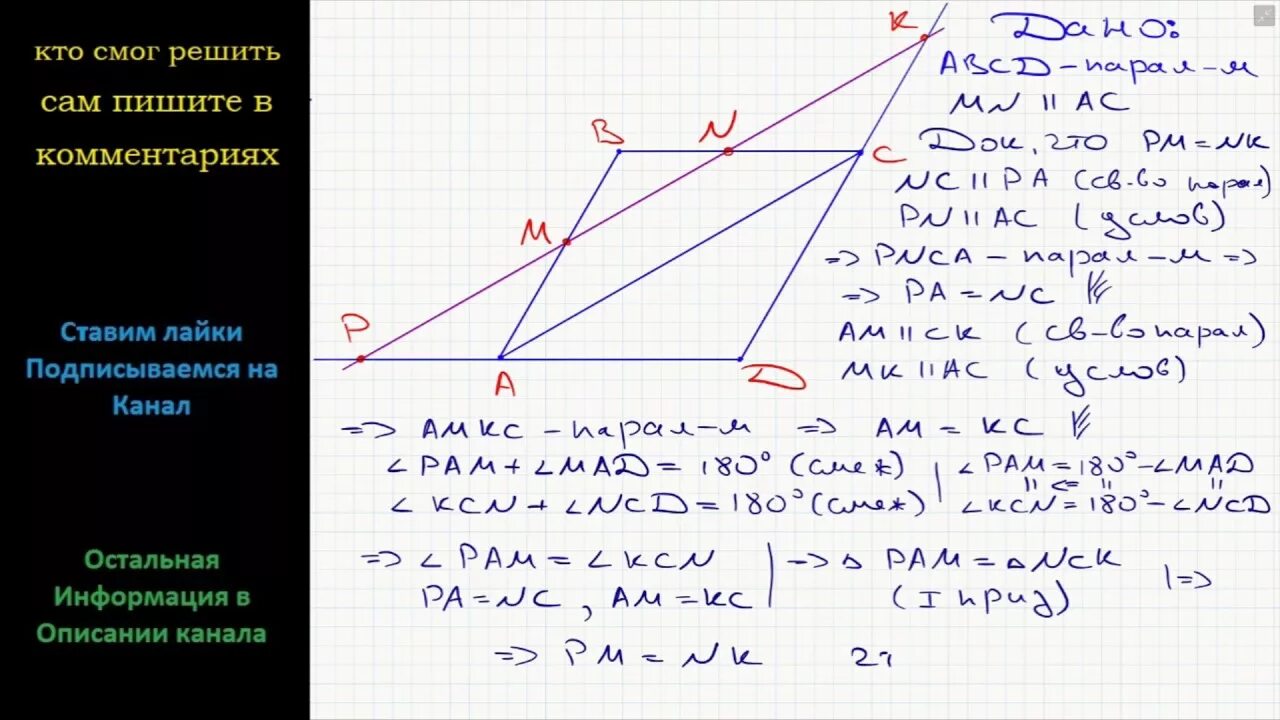 кто смог решить
сам пишите в
комментариях
Ставим лайки
Подписываемся на
Канал
Остальная
Информация в
Описании канала
B
N
K
C
M
P
A
D
Дано:
ABCD - парал-м
MN || AC
Док, что PM = NK
NC || PA (св-во парал)
PN || AC (услов)
=> PNCA - парал-м =>
=> PA = NC
AM || CK (св-во парал)
MK || AC (услов)
=> AMKC - парал-м => AM = KC
∠PAM + ∠MAD = 180° (смеж) | ∠PAM = 180° - ∠MAD
|| <= || ||
∠KCN + ∠NCD = 180° (смеж) | ∠KCN = 180° - ∠NCD
=> ∠PAM = ∠KCN | => △PAM = △NCK
PA = NC, AM = KC | (I приз) | =>
=> PM = NK